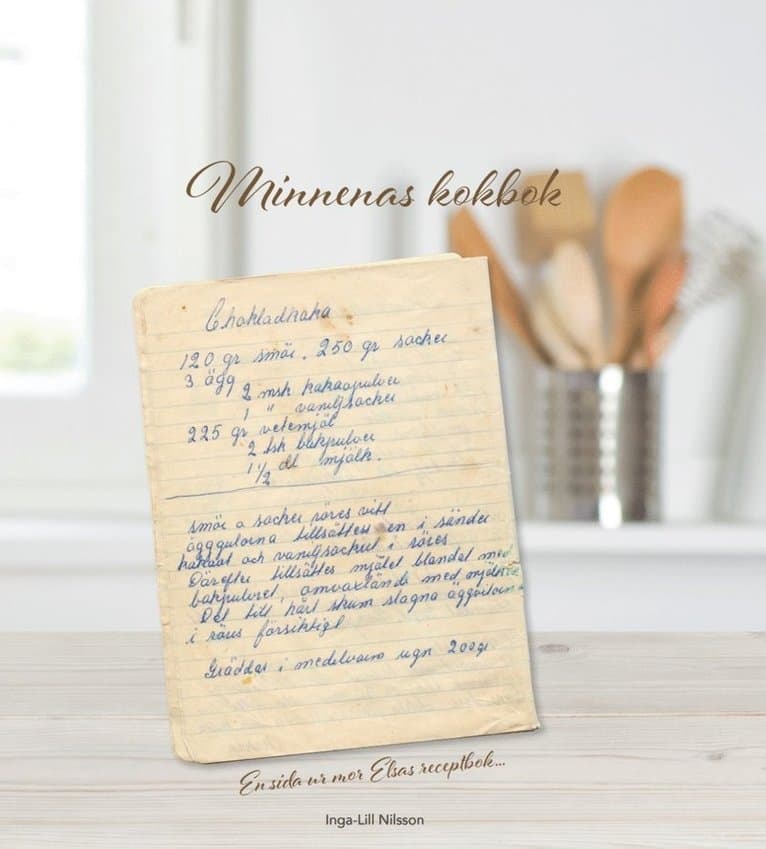 Minnenas kokbok
Chokladkaka
120 gr smör. 250 gr socker
3 ägg
2 msk kakaopulver
1 " vaniljsocker
225 gr vetemjöl
2 tsk bakpulver
1 1/2 dl mjölk.
smör o socker röres vitt
ägggulorna tillsättes en i sänder
kakaot och vaniljsockret i röres
Därefter tillsättes mjölet blandat med
bakpulvret, omväxlande med mjölken
Det till hårt skum slagna äggvitorna
i röres försiktigt
Gräddas i medelvarm ugn 200gr
En sida ur mor Elsas receptbok...
Inga-Lill Nilsson